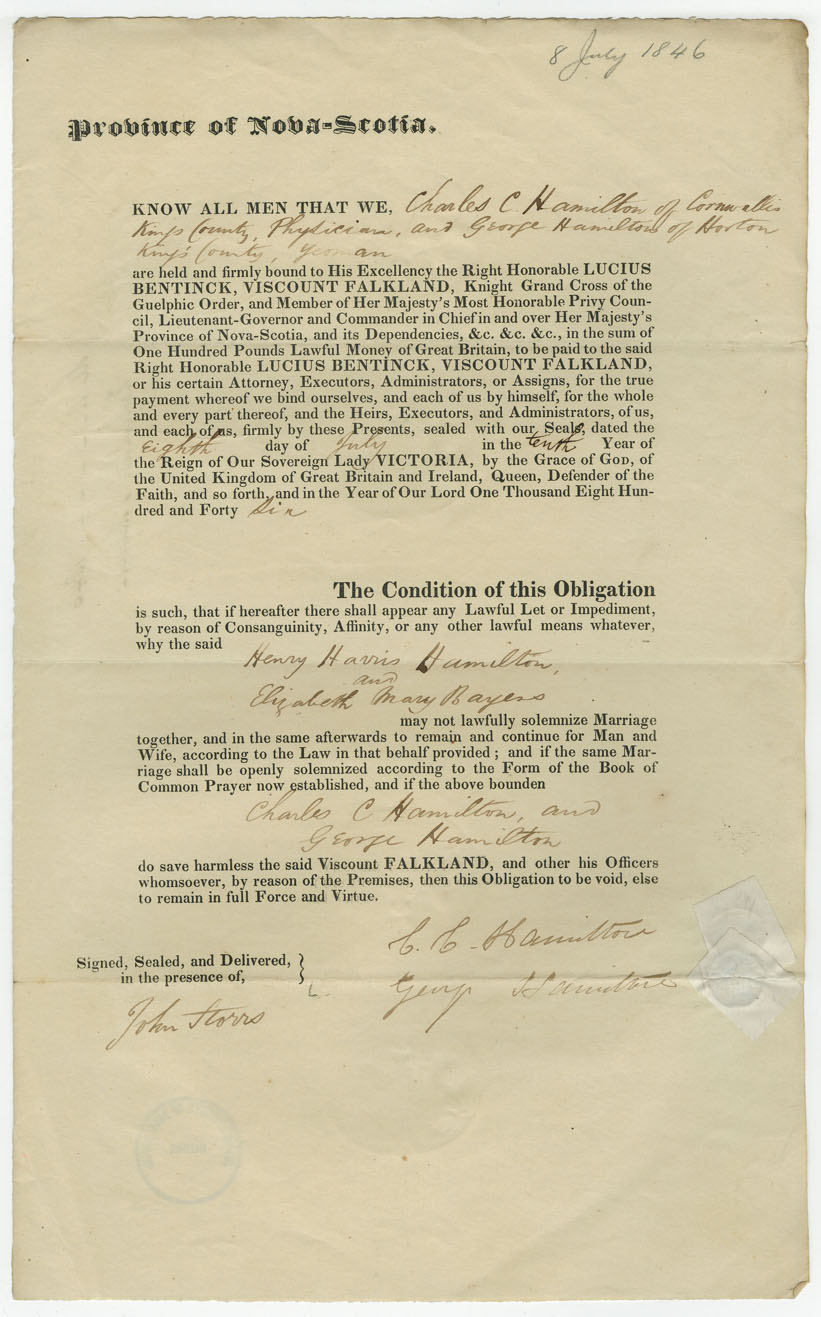 8 July 1846
Province of Nova-Scotia.
KNOW ALL MEN THAT WE, Charles C Hamilton of Cornwallis
Kings County, Physician, and George Hamilton of Horton
Kings County, yeoman
are held and firmly bound to His Excellency the Right Honorable LUCIUS
BENTINCK, VISCOUNT FALKLAND, Knight Grand Cross of the
Guelphic Order, and Member of Her Majesty's Most Honorable Privy Coun-
cil, Lieutenant-Governor and Commander in Chief in and over Her Majesty's
Province of Nova-Scotia, and its Dependencies, &c. &c. &c., in the sum of
One Hundred Pounds Lawful Money of Great Britain, to be paid to the said
Right Honorable LUCIUS BENTINCK, VISCOUNT FALKLAND,
or his certain Attorney, Executors, Administrators, or Assigns, for the true
payment whereof we bind ourselves, and each of us by himself, for the whole
and every part thereof, and the Heirs, Executors, and Administrators, of us,
and each of us, firmly by these Presents, sealed with our Seals, dated the
Eighth day of July in the tenth Year of
the Reign of Our Sovereign Lady VICTORIA, by the Grace of GOD, of
the United Kingdom of Great Britain and Ireland, Queen, Defender of the
Faith, and so forth, and in the Year of Our Lord One Thousand Eight Hun-
dred and Forty Six
The Condition of this Obligation
is such, that if hereafter there shall appear any Lawful Let or Impediment,
by reason of Consanguinity, Affinity, or any other lawful means whatever,
why the said
Henry Harris Hamilton,
and
Elizabeth Mary Bayers
may not lawfully solemnize Marriage
together, and in the same afterwards to remain and continue for Man and
Wife, according to the Law in that behalf provided ; and if the same Mar-
riage shall be openly solemnized according to the Form of the Book of
Common Prayer now established, and if the above bounden
Charles C Hamilton, and
George Hamilton
do save harmless the said Viscount FALKLAND, and other his Officers
whomsoever, by reason of the Premises, then this Obligation to be void, else
to remain in full Force and Virtue.
C. C. Hamilton
Signed, Sealed, and Delivered,
in the presence of,
George Hamilton
John Storrs